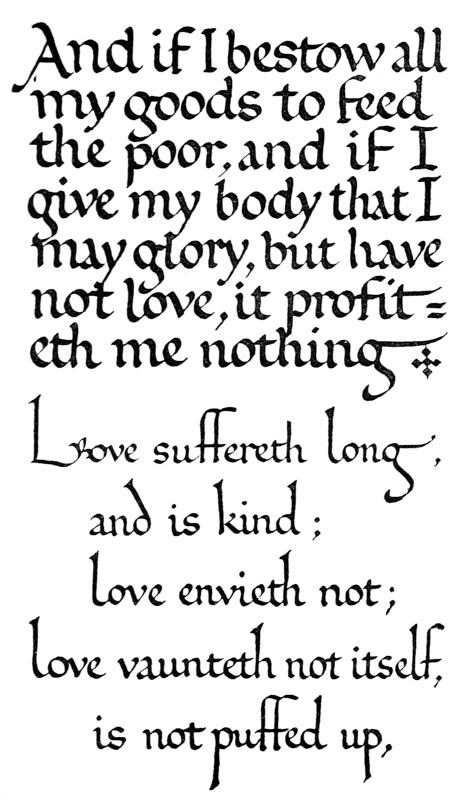 And if I bestow all
my goods to feed
the poor, and if I
give my body that I
may glory, but have
not love, it profit=
eth me nothing
Love suffereth long,
and is kind;
love envieth not;
love vaunteth not itself,
is not puffed up,